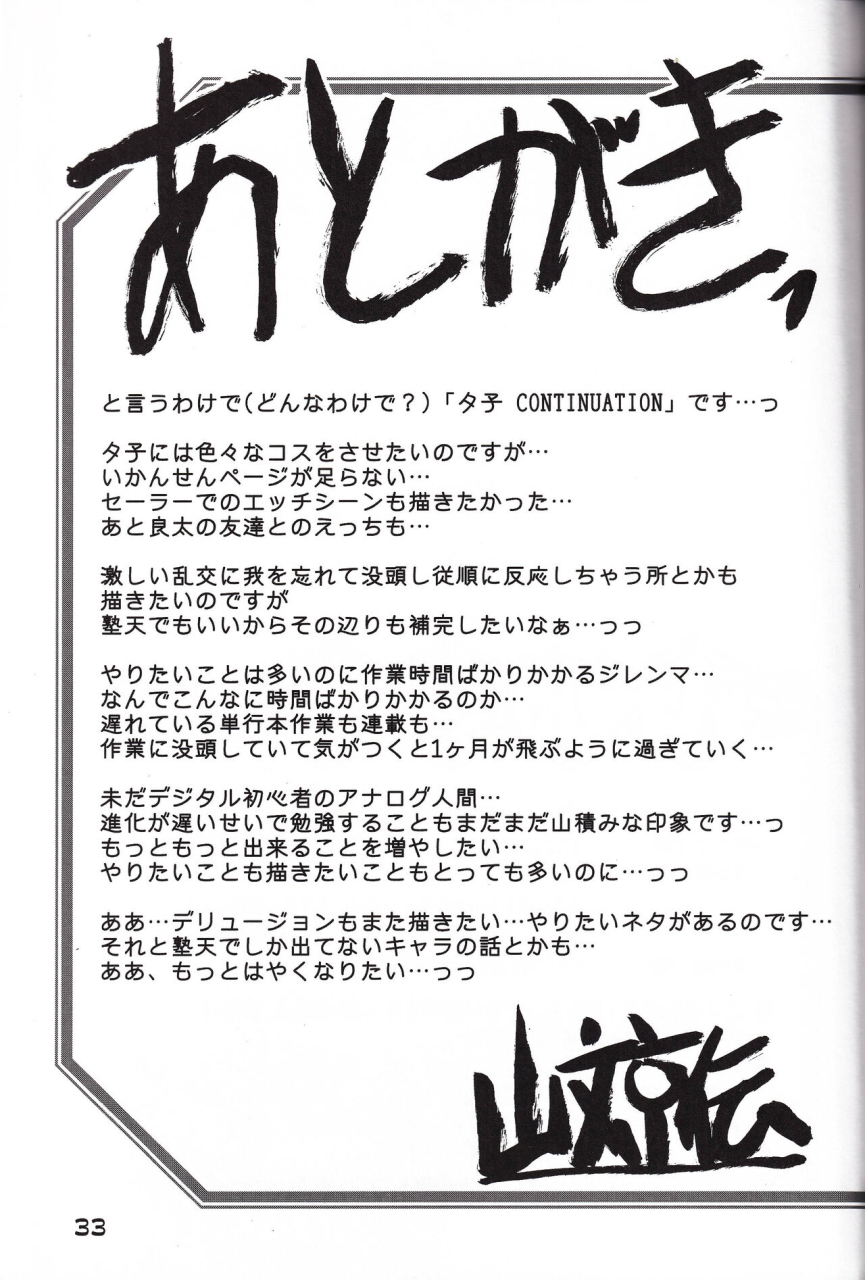 あとがきっ
と言うわけで(どんなわけで？)「夕子 CONTINUATION」です…っ
夕子には色々なコスをさせたいのですが…
いかんせんページが足らない…
セーラーでのエッチシーンも描きたかった…
あと良太の友達とのえっちも…
激しい乱交に我を忘れて没頭し従順に反応しちゃう所とかも
描きたいのですが
塾天でもいいからその辺りも補完したいなぁ…っっ
やりたいことは多いのに作業時間ばかりかかるジレンマ…
なんでこんなに時間ばかりかかるのか…
遅れている単行本作業も連載も…
作業に没頭していて気がつくと1ヶ月が飛ぶように過ぎていく…
未だデジタル初心者のアナログ人間…
進化が遅いせいで勉強することもまだまだ山積みな印象です…っ
もっともっと出来ることを増やしたい…
やりたいことも描きたいこともとっても多いのに…っっ
ああ…デリュージョンもまた描きたい…やりたいネタがあるのです…
それと塾天でしか出てないキャラの話とかも…
ああ、もっとはやくなりたい…っっ
山文京伝
33